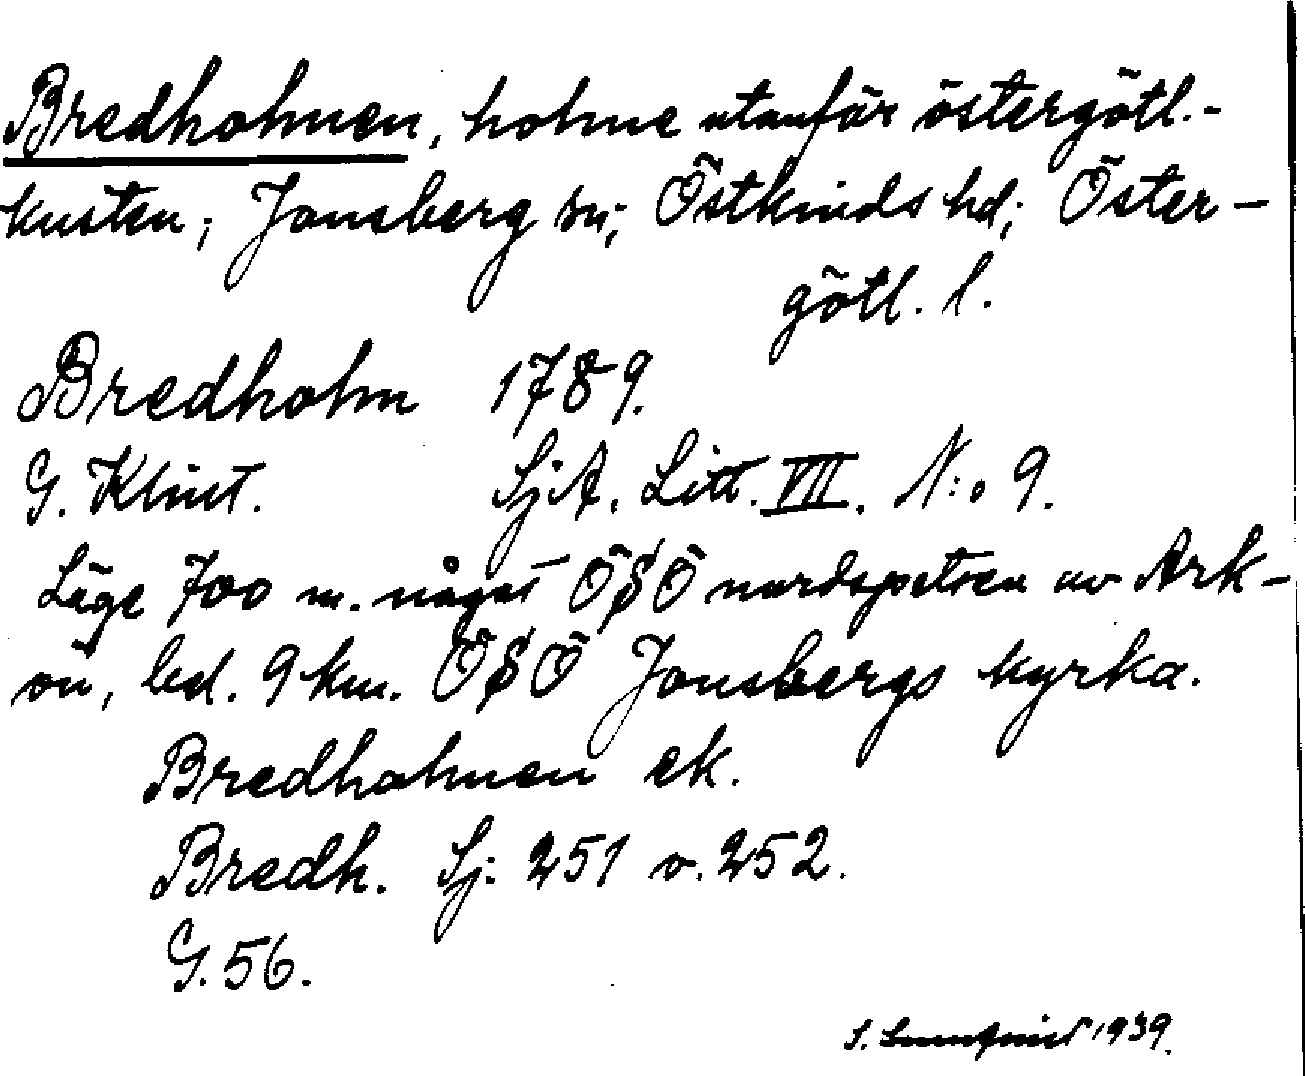 Bredholmen, holme utanför östergötl.-
kusten; Jonsberg sn; Östkinds hd; Öster-
götl. l.
Bredholm 1789.
G. Klint. SjA. Litt. VII. N:o 9.
Läge 700 m. något ÖSÖ nordspetsen av Ark-
ön, bel. 9 km. ÖSÖ Jonsbergs kyrka.
Bredholmen ek.
Bredh. Sj: 251 o. 252.
G. 56.
S. 1939.